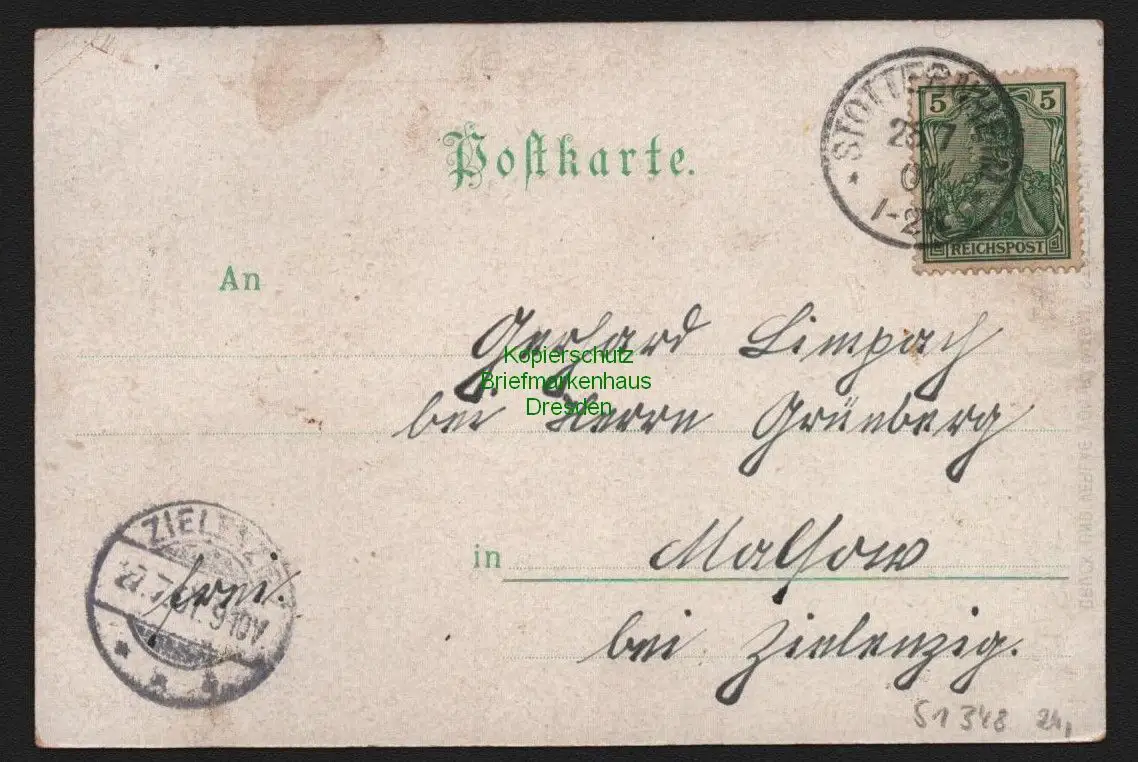 Postkarte.
STOTTERNHEIM
7
1-2N
5 5
REICHSPOST
An
Gerhard Limpach
Kopierschutz
Briefmarkenhaus
Dresden
bei Herrn Grünberg
in Malsow
bei Zielenzig.
ZIELENZIG
27.7.01. 9-10V
frei.
S1 348 24,
DRUCK UND VERLAG